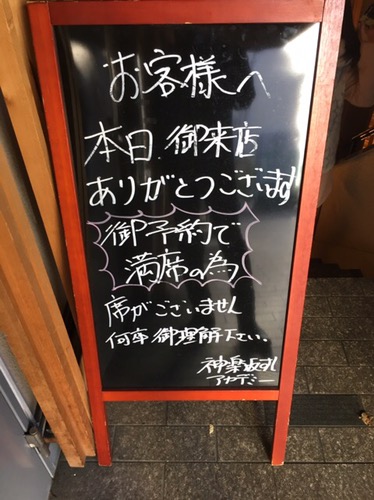 お客様へ
本日御来店
ありがとうございます
御予約で
満席の為
席がございません
何卒御理解下さい。
神楽坂すし
アカデミー